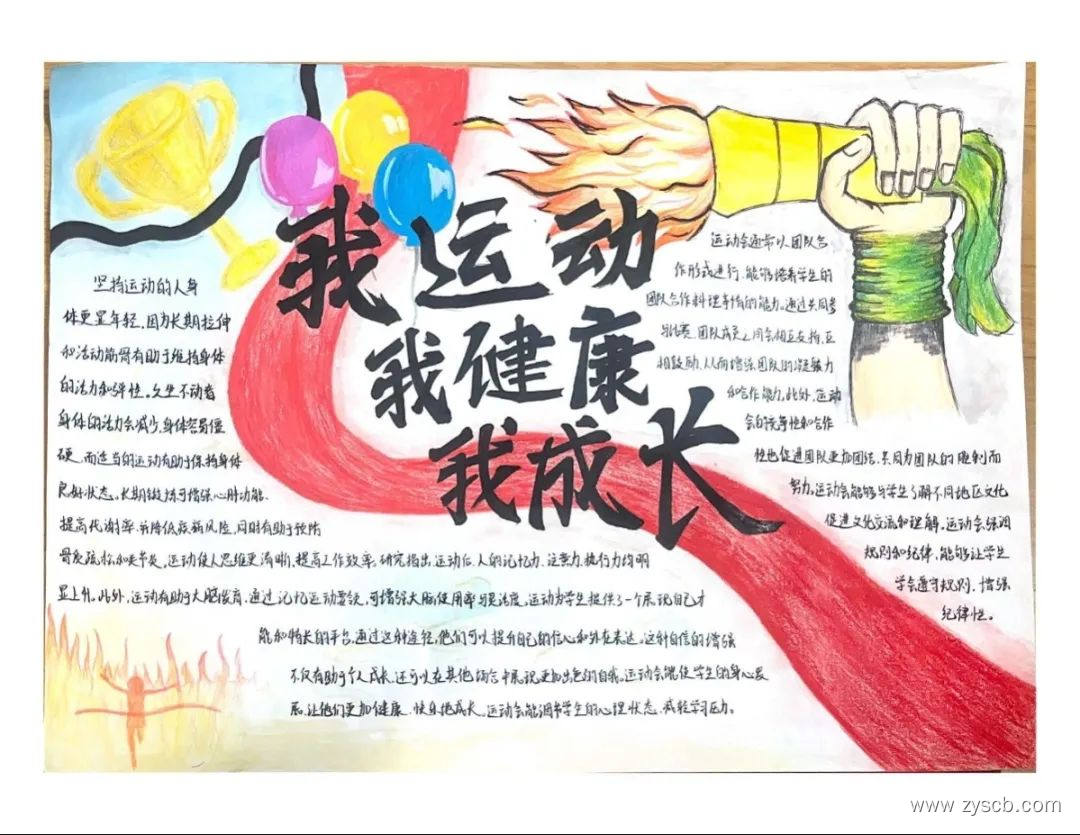 我运动
我健康
我成长
坚持运动的人身
体更显年轻,因为长期拉伸
和活动筋骨有助于维持身体
的活力和弹性。久坐不动者
身体的活力会减少,身体容易僵
硬,而适当的运动有助于保持身体
良好状态。长期锻炼可增强心肺功能、
提高代谢率、并降低疾病风险,同时有助于预防
骨质疏松和关节炎。运动使人思维更清晰,提高工作效率。研究指出,运动后,人的记忆力、注意力、执行力均明
显上升。此外,运动有助于大脑发育,通过记忆运动要领,可增强大脑使用率与灵活度。运动为学生提供了一个展现自己才
能和特长的平台,通过这种途径,他们可以提升自己的信心和外在表达。这种自信的增强
不仅有助于个人成长,还可以在其他场合中展现更加出色的自我。运动会能促学生的身心发
展,让他们更加健康、快乐地成长。运动会能调节学生的心理状态,减轻学习压力。
运动会通常以团队合
作形式进行,能够培养学生的
团队合作料理事情的能力。通过共同参
与比赛,团队成员之间会相互支持、互
相鼓励,从而增强团队的凝聚力
和合作能力。此外,运动
会的竞争性和合作
性也促进团队更加团结,共同为团队的胜利而
努力。运动会能够与学生了解不同地区文化
促进文化交流和理解。运动会强调
规则和纪律,能够让学生
学会遵守规则,增强
纪律性。
www zyscb.com